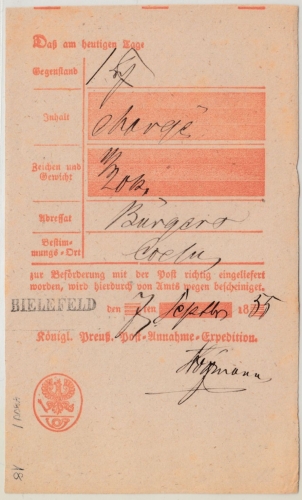 Daß am heutigen Tage
Gegenstand 1 Bf
Inhalt
chargé
Zeichen und
Gewicht
Adressat Bürgers
Bestim-
mungs-Ort Coeln,
zur Beförderung mit der Post richtig eingeliefert
worden, wird hierdurch von Amts wegen bescheiniget.
BIELEFELD den 7 ten Septbr 1855
Königl. Preuß. Post-Annahme-Expedition.
18